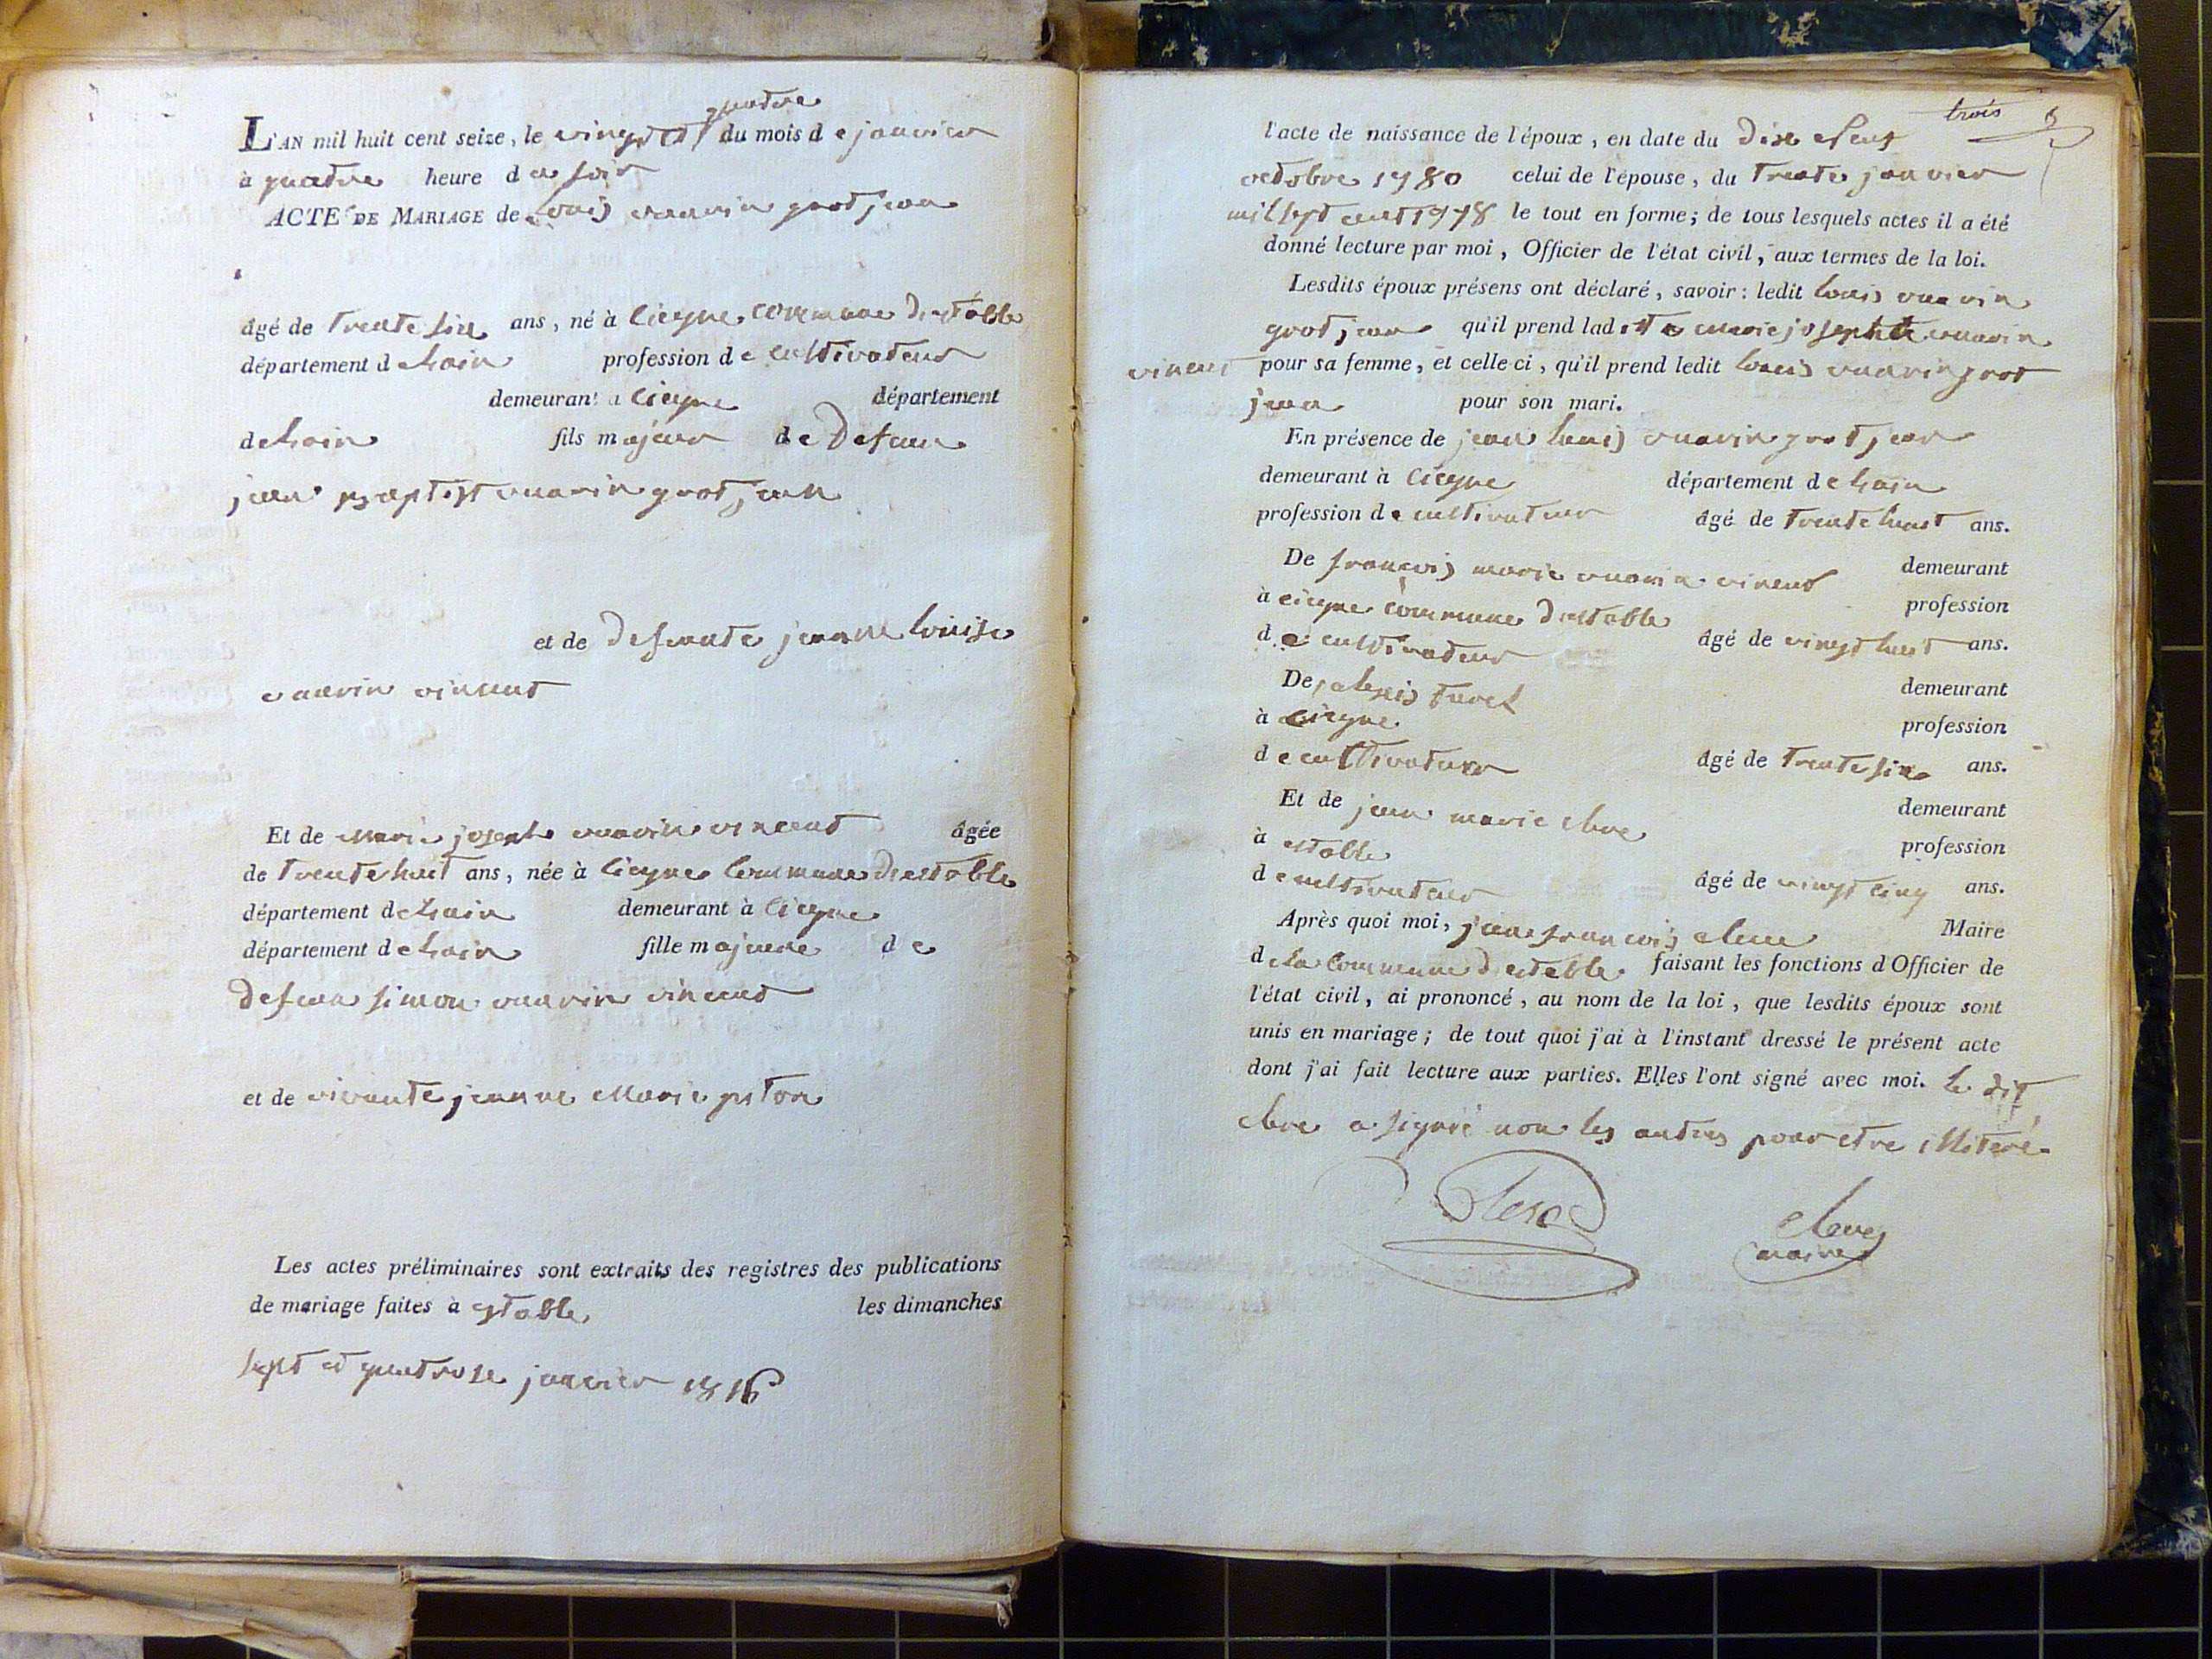 quatre
L'AN mil huit cent seize, le vingt et du mois de janvier
à quatre heure du soir
ACTE DE MARIAGE de Louis vuarin grot jean
âgé de trente six ans, né à cieyne commune destable
département de lain profession de cultivateur
demeurant a cieyne département
de lain fils majeur de Defeun
jean baptist vuarin grot jean
et de defeunte jeanne louise
vuarin vincent
Et de marie joseph vuarin vincent âgée
de trente huit ans, née à cieyne commune destable
département de lain demeurant à cieyne
département de lain fille majeure de
defeun simon vuarin vincent
et de vivante jeanne marie piton
Les actes préliminaires sont extraits des registres des publications
de mariage faites à estable les dimanches
sept et quatrose janvier 1816
trois
l'acte de naissance de l'époux, en date du dixe neuf
octobre 1780 celui de l'épouse, du trente janvier
mil sept cent 1778 le tout en forme; de tous lesquels actes il a été
donné lecture par moi, Officier de l'état civil, aux termes de la loi.
Lesdits époux présens ont déclaré, savoir: ledit louis vuarin
grot jean qu'il prend ladite marie josephte vuarin
vincent pour sa femme, et celle ci, qu'il prend ledit louis vuarin grot
jean pour son mari.
En présence de jean louis vuarin grot jean
demeurant à cieyne département de lain
profession de cultivateur âgé de trente huit ans.
De françois marie vuarin vincent demeurant
à cieyne commune destable profession
de cultivateur âgé de vingt huit ans.
De alexis turel demeurant
à cieyne profession
de cultivateur âgé de trente six ans.
Et de jean marie clerc demeurant
à estable profession
de cultivateur âgé de vingt cinq ans.
Après quoi moi, jean françois clerc Maire
de la commune destable faisant les fonctions d'Officier de
l'état civil, ai prononcé, au nom de la loi, que lesdits époux sont
unis en mariage; de tout quoi j'ai à l'instant dressé le présent acte
dont j'ai fait lecture aux parties. Elles l'ont signé avec moi. le dit
clerc a signié non les autres pour etre illiteré
Clerc clerc
maire